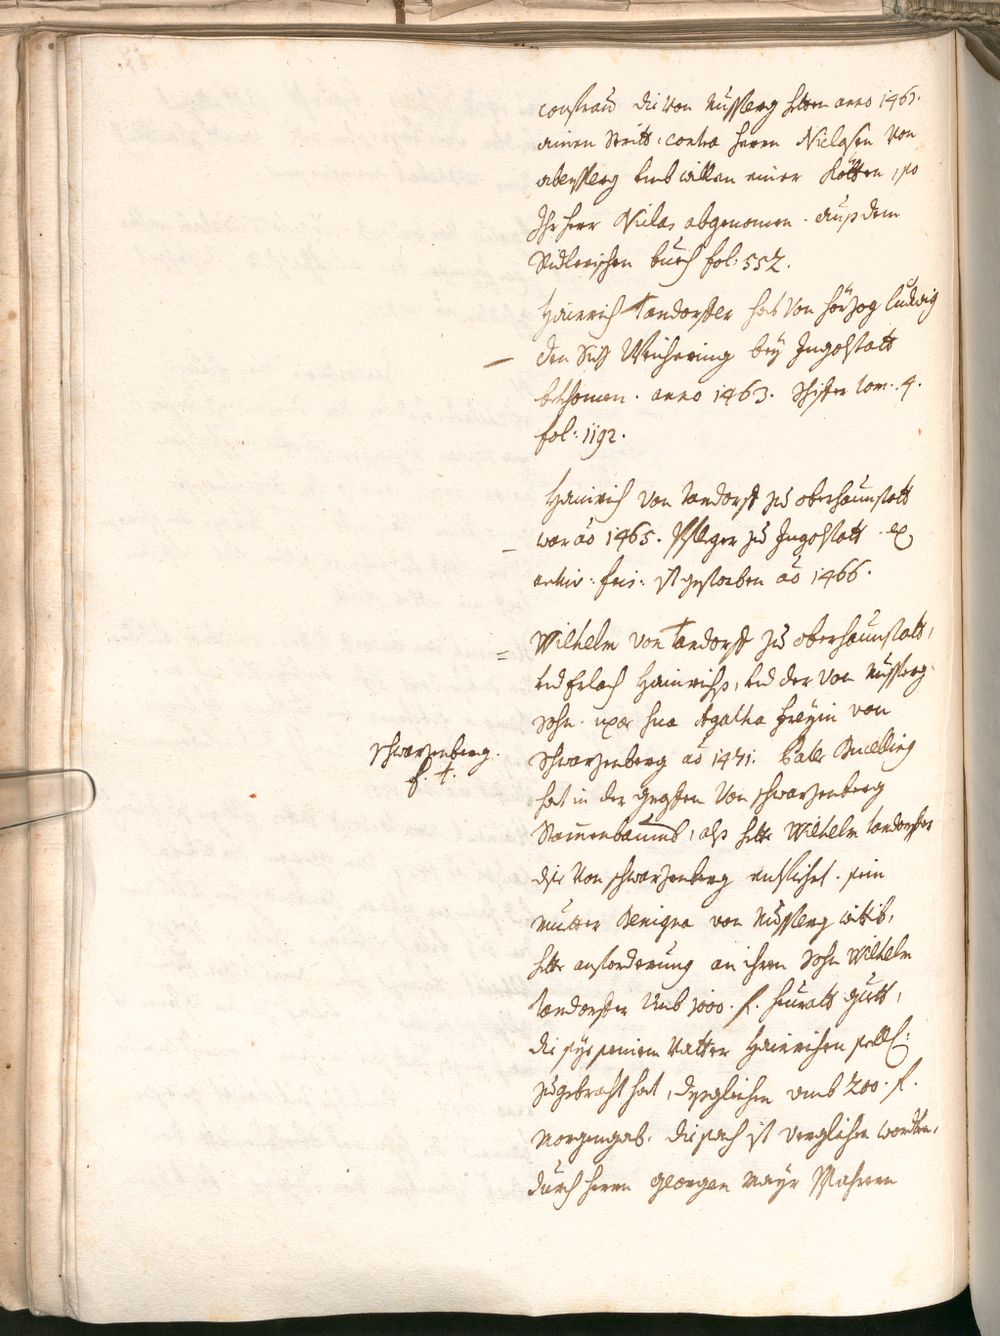 consfraŭ die von Nŭssberg hetten anno 1463.
ainen Stritt contra herrn Niclasen von
abensperg umb willen einer Kötten, so
Ihr herr Niclas abgenomen. auß dem
Sidlerischen buech fol: 552.
Hainrich Tandorffer hat von Hörzog Ludwig
den Siz Weichering bey Ingolstatt
bekhomen. anno 1463. Schifter tom. 4.
fol: 1192.
Hainrich von Tandorff zu oberhaunstatt
war ao 1465. Pfleger zu Ingolstatt ex
archiv: fris: ist gestorben ao 1466.
Wilhelm von Tandorff zu oberhaunstatt,
und Erlach Hainrichs, und der von Nussberg
sohn. uxor sua Agatha freyin von
Schwarzenberg ao 1471. Pater Bucelling
schwarzenberg.
f. †.
hat in der von schwarzenberg
Stammenbaumb, als hette Wilhelm tandorffer
die von schwarzenberg . sein
Muetter Benigna von Nussberg wittib,
hette anforderung an ihren Sohn Wilhelm
tandorffer umb 1000. f. heuratt guett,
die sye seinem Vatter Hainrichen seel:
zugebracht hat, dergleichen umb 200. f.
Morgengab. die sach ist verglichen worden,
durch herrn georgen Mayr Pfahrern